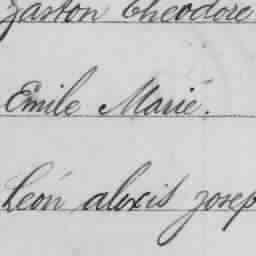 gaston Théodore
Emile Marie.
Léon alexis josep